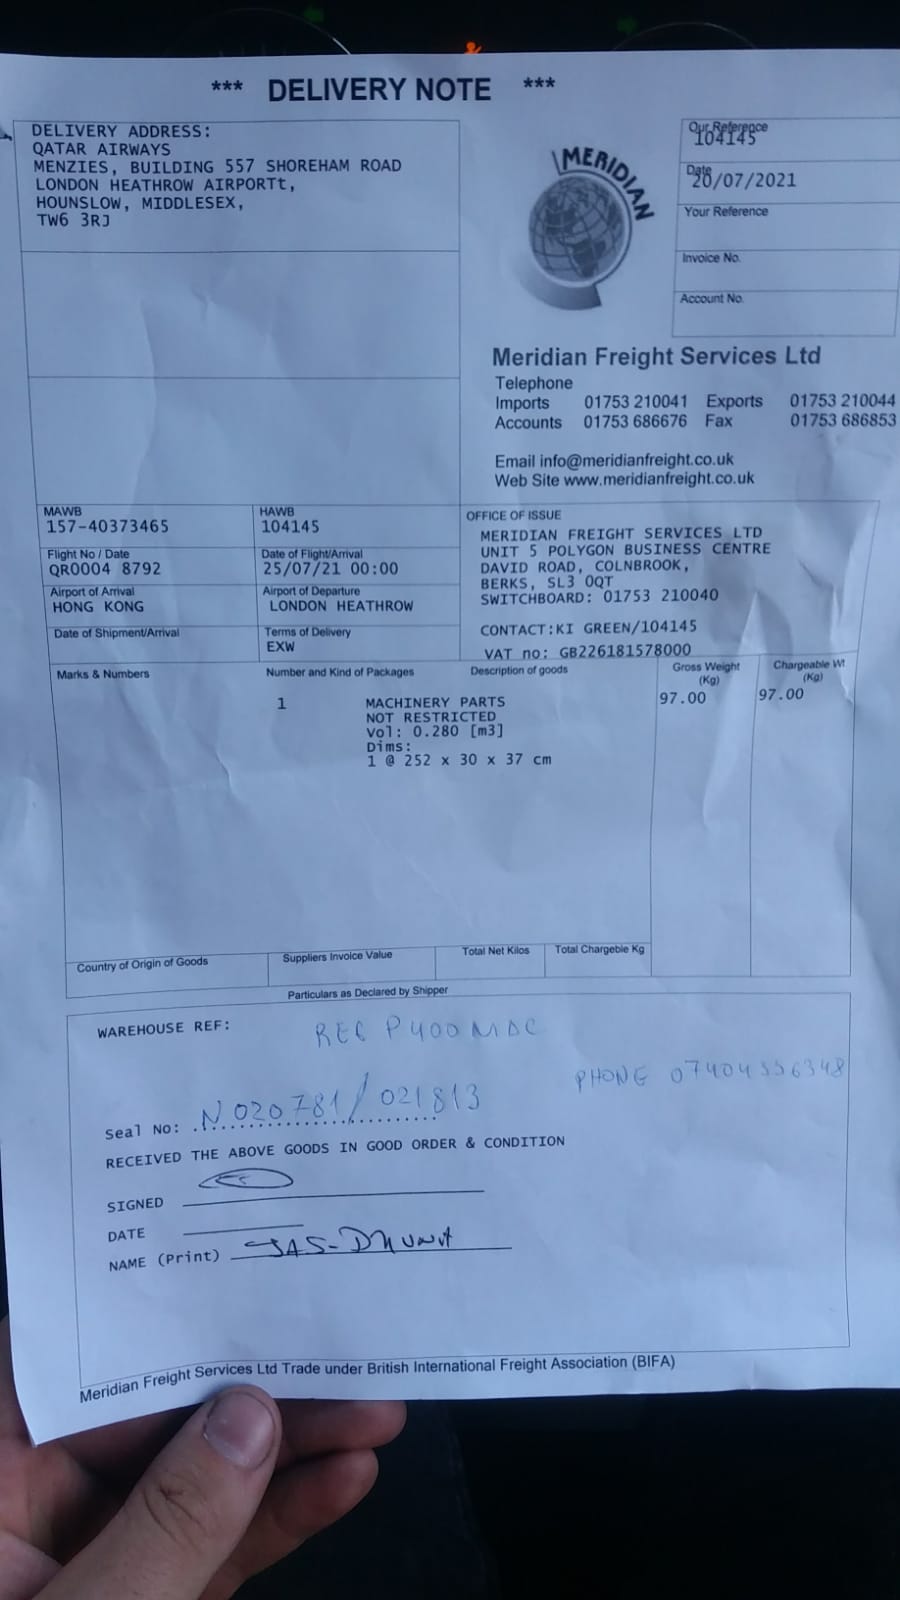 *** DELIVERY NOTE ***
DELIVERY ADDRESS:
QATAR AIRWAYS
MENZIES, BUILDING 557 SHOREHAM ROAD
LONDON HEATHROW AIRPORTt,
HOUNSLOW, MIDDLESEX,
TW6 3RJ
MERIDIAN
Our Reference
104145
Date
20/07/2021
Your Reference
Invoice No.
Account No.
Meridian Freight Services Ltd
Telephone
Imports 01753 210041 Exports 01753 210044
Accounts 01753 686676 Fax 01753 686853
Email info@meridianfreight.co.uk
Web Site www.meridianfreight.co.uk
MAWB
157-40373465
HAWB
104145
Flight No / Date
QR0004 8792
Date of Flight/Arrival
25/07/21 00:00
Airport of Arrival
HONG KONG
Airport of Departure
LONDON HEATHROW
Date of Shipment/Arrival
Terms of Delivery
EXW
OFFICE OF ISSUE
MERIDIAN FREIGHT SERVICES LTD
UNIT 5 POLYGON BUSINESS CENTRE
DAVID ROAD, COLNBROOK,
BERKS, SL3 0QT
SWITCHBOARD: 01753 210040
CONTACT:KI GREEN/104145
VAT no: GB226181578000
Marks & Numbers
Number and Kind of Packages
Description of goods
Gross Weight
(Kg)
Chargeable Wt
(Kg)
1 MACHINERY PARTS 97.00 97.00
NOT RESTRICTED
Vol: 0.280 [m3]
Dims:
1 @ 252 x 30 x 37 cm
Country of Origin of Goods
Suppliers Invoice Value
Total Net Kilos
Total Chargeble Kg
Particulars as Declared by Shipper
WAREHOUSE REF:
REG P400MDC
PHONE
Seal No: N020781/021813
RECEIVED THE ABOVE GOODS IN GOOD ORDER & CONDITION
SIGNED
DATE
NAME (Print)
Meridian Freight Services Ltd Trade under British International Freight Association (BIFA)